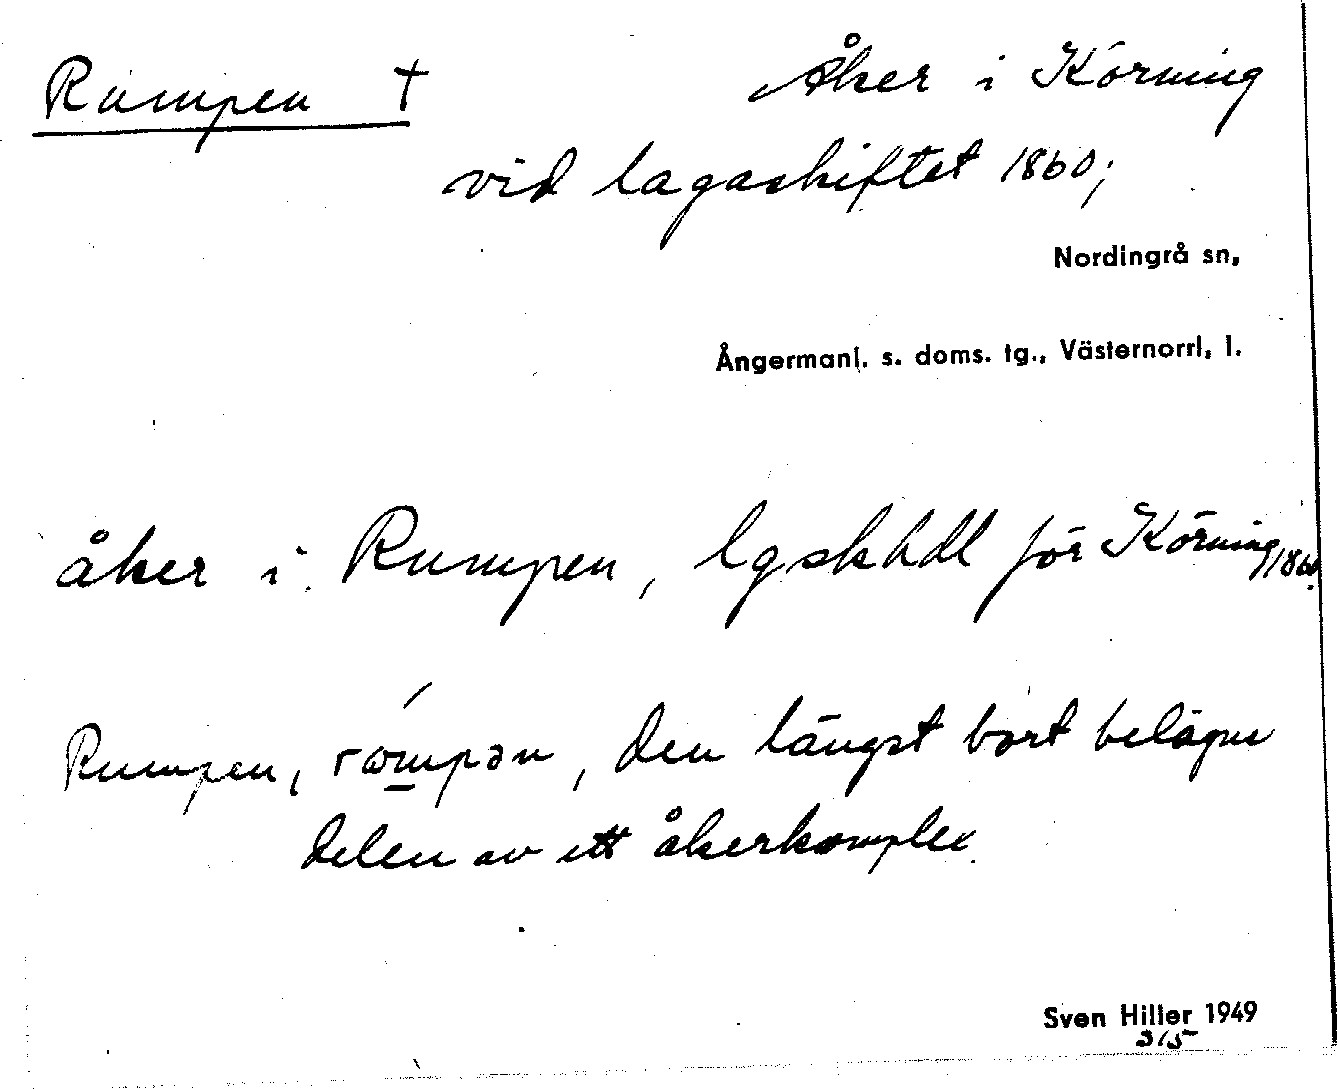 Rumpen †
Åker i Körning
vid lagaskiftet 1860;
Nordingrå sn,
Ångermanl. s. doms. tg., Västernorrl. l.
åker i Rumpen, lgskhdl för Körning 1860.
Rumpen, rωmpən, den längst bort belägne
delen av ett åkerkomplex.
Sven Hiller 1949
315